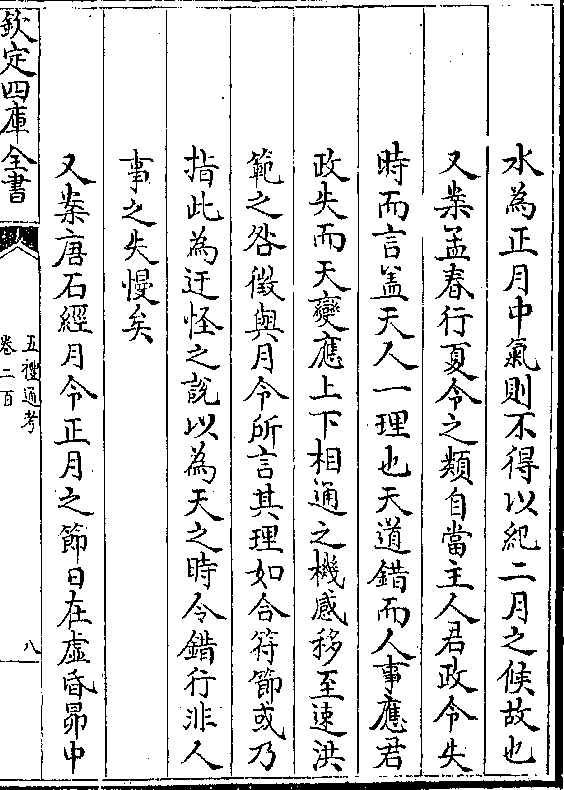 水為正月中氣則不得以紀二月之候故也
又案孟春行夏令之類自當主人君政令失
時而言盖天人一理也天道錯而人事應君
政失而天變應上下相通之機感移至速洪
範之咎徵與月令所言其理如合符節或乃
指此為迂怪之說以為天之時令錯行非人
事之失慢矣
又案唐石經月令正月之節日在虛昏昴中
欽定四庫全書
五禮通考
卷二百
八